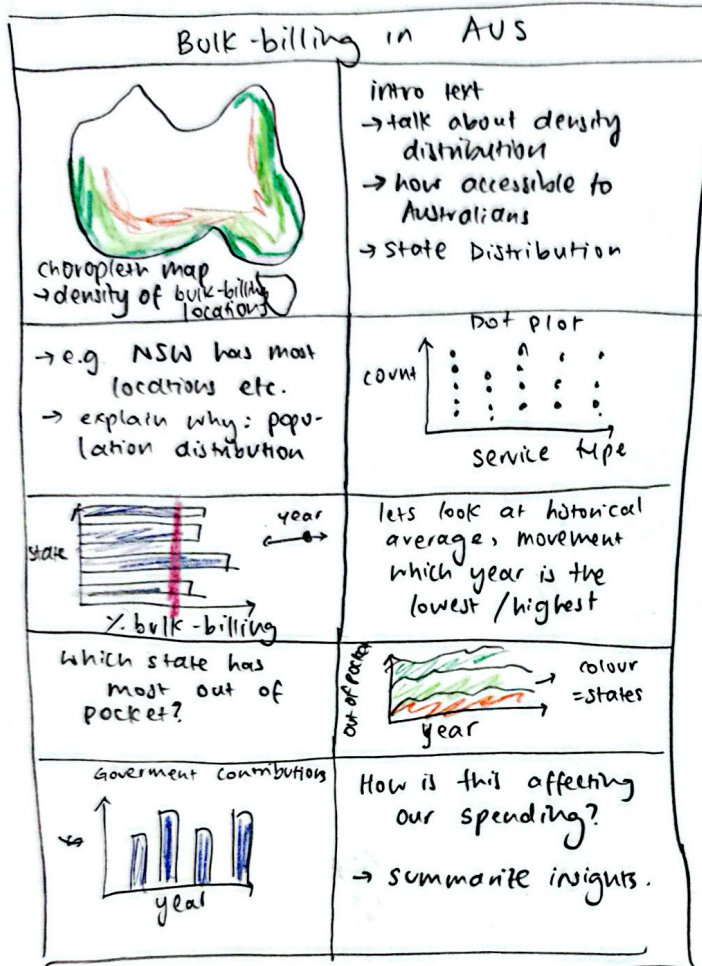 Bulk-billing in AUS
choropleth map
→ density of bulk-billing
locations
intro text
→ talk about density
distribution
→ how accessible to
Australians
→ State Distribution
→ e.g. NSW has most
locations etc.
→ explain why: popu-
lation distribution
Dot plot
count
service type
state
year
% bulk-billing
lets look at historical
average, movement
which year is the
lowest / highest
which state has
most out of
pocket?
out of pocket
year
→ colour
= states
Goverment contributions
year
How is this affecting
our spending?
→ summarize insights.